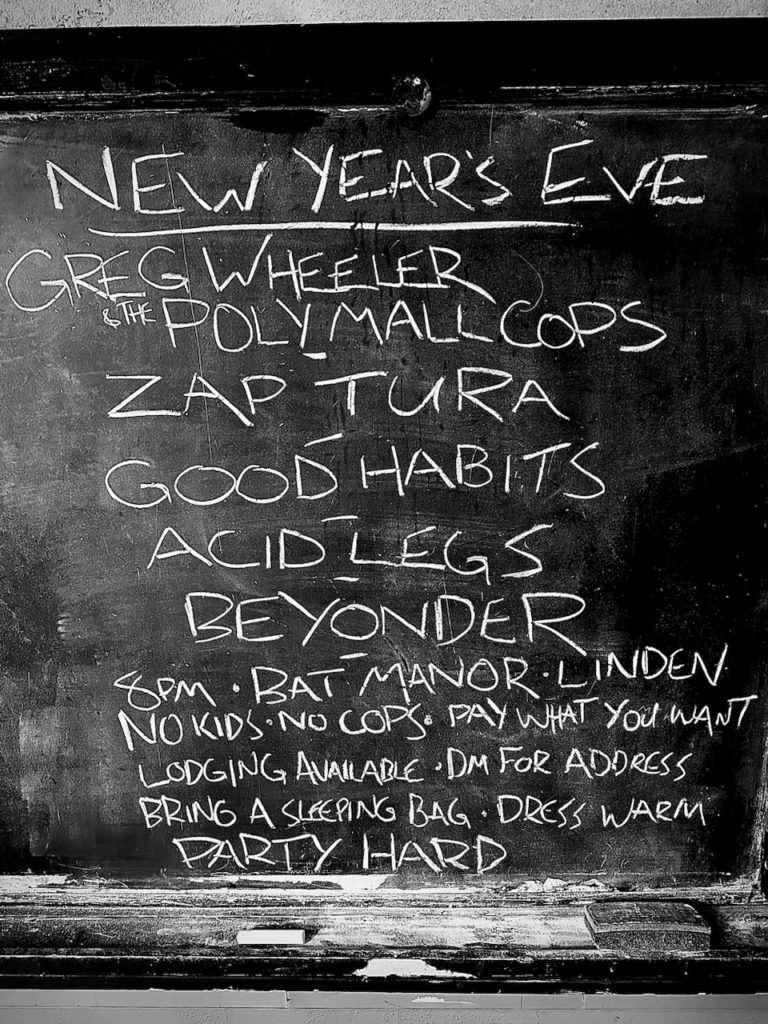 NEW YEAR'S EVE
GREG WHEELER
& THE POLY MALL COPS
ZAP TURA
GOOD HABITS
ACID LEGS
BEYONDER
8PM · BAT MANOR · LINDEN
NO KIDS · NO COPS · PAY WHAT YOU WANT
LODGING AVAILABLE · DM FOR ADDRESS
BRING A SLEEPING BAG · DRESS WARM
PARTY HARD